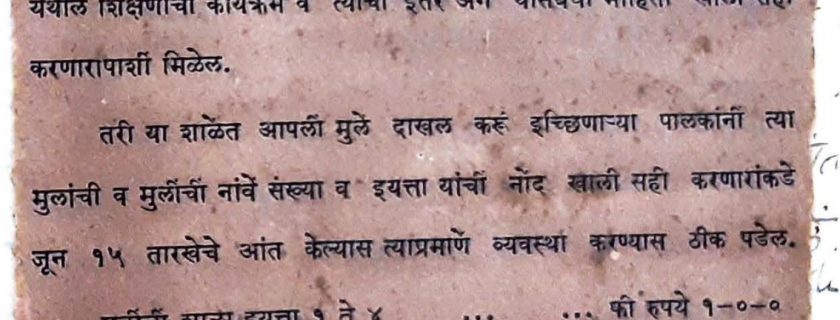 येथील शिक्षणाचा कार्यक्रम व त्याचीं इतर अंगें यांसंबंधी माहिती खालीं सही
करणारापाशीं मिळेल.
तरी या शाळेंत आपलीं मुलें दाखल करूं इच्छिणाऱ्या पालकांनीं त्या
मुलांचीं व मुलींचीं नांवें संख्या व इयत्ता यांची नोंद खालीं सही करणारांकडे
जून १५ तारखेचे आंत केल्यास त्याप्रमाणें व्यवस्था करण्यास ठीक पडेल.
इयत्ता १ ते ४ ... ... फी रुपये १-०-०